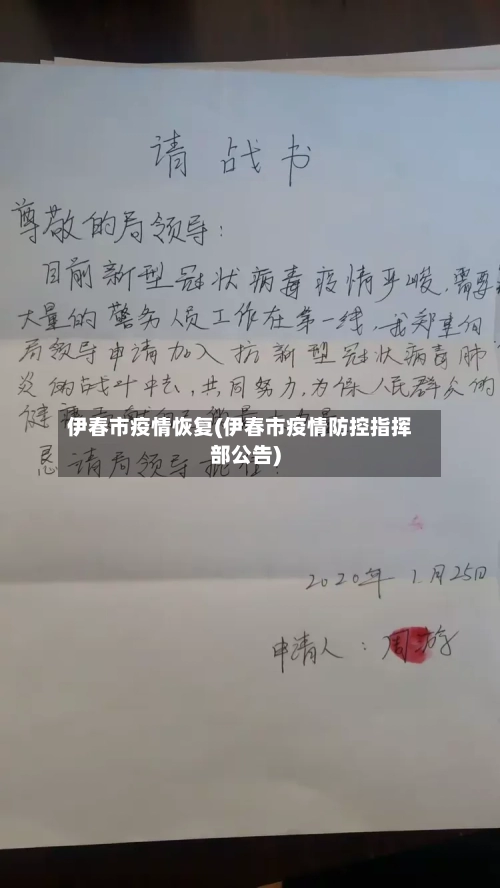 请战书
尊敬的局领导：
目前新型冠状病毒疫情严峻，需要
大量的警务人员工作在第一线，我郑重向
局领导申请加入抗新型冠状病毒肺
炎的战斗中去，共同努力，为保人民群众的
健
伊春市疫情恢复(伊春市疫情防控指挥
部公告)
恳请局领导批准！
2020年 1月25日
申请人：周游